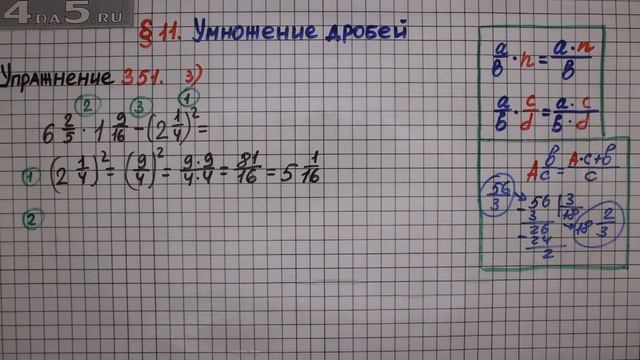 4да5.RU
§ 11. Умножение дробей
Упражнение 351. 3)
② ③ ①
6 2/5 · 1 9/16 - (2 1/4)² =
① (2 1/4)² = (9/4)² = 9·9/4·4 = 81/16 = 5 1/16
②
a/b · n = a·n/b
a/b · c/d = a·c/b·d
A b/c = A·c+b/c
56/3
56 | 3
- 3 | 18 → 18 2/3
26
- 24
2